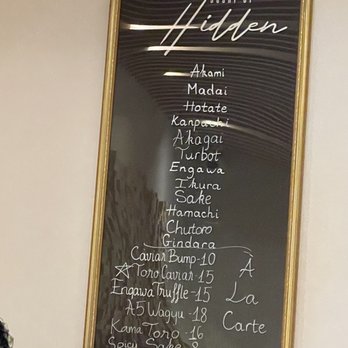 Hidden
Akami
Madai
Hotate
Kanpachi
Akagai
Turbot
Engawa
Ikura
Sake
Hamachi
Chutoro
Gindara
Caviar Bump-10
Toro Caviar-15
Engawa Truffle-15
A5 Wagyu-18
Kama Toro-16
Spicy Sake-8
À
La
Carte